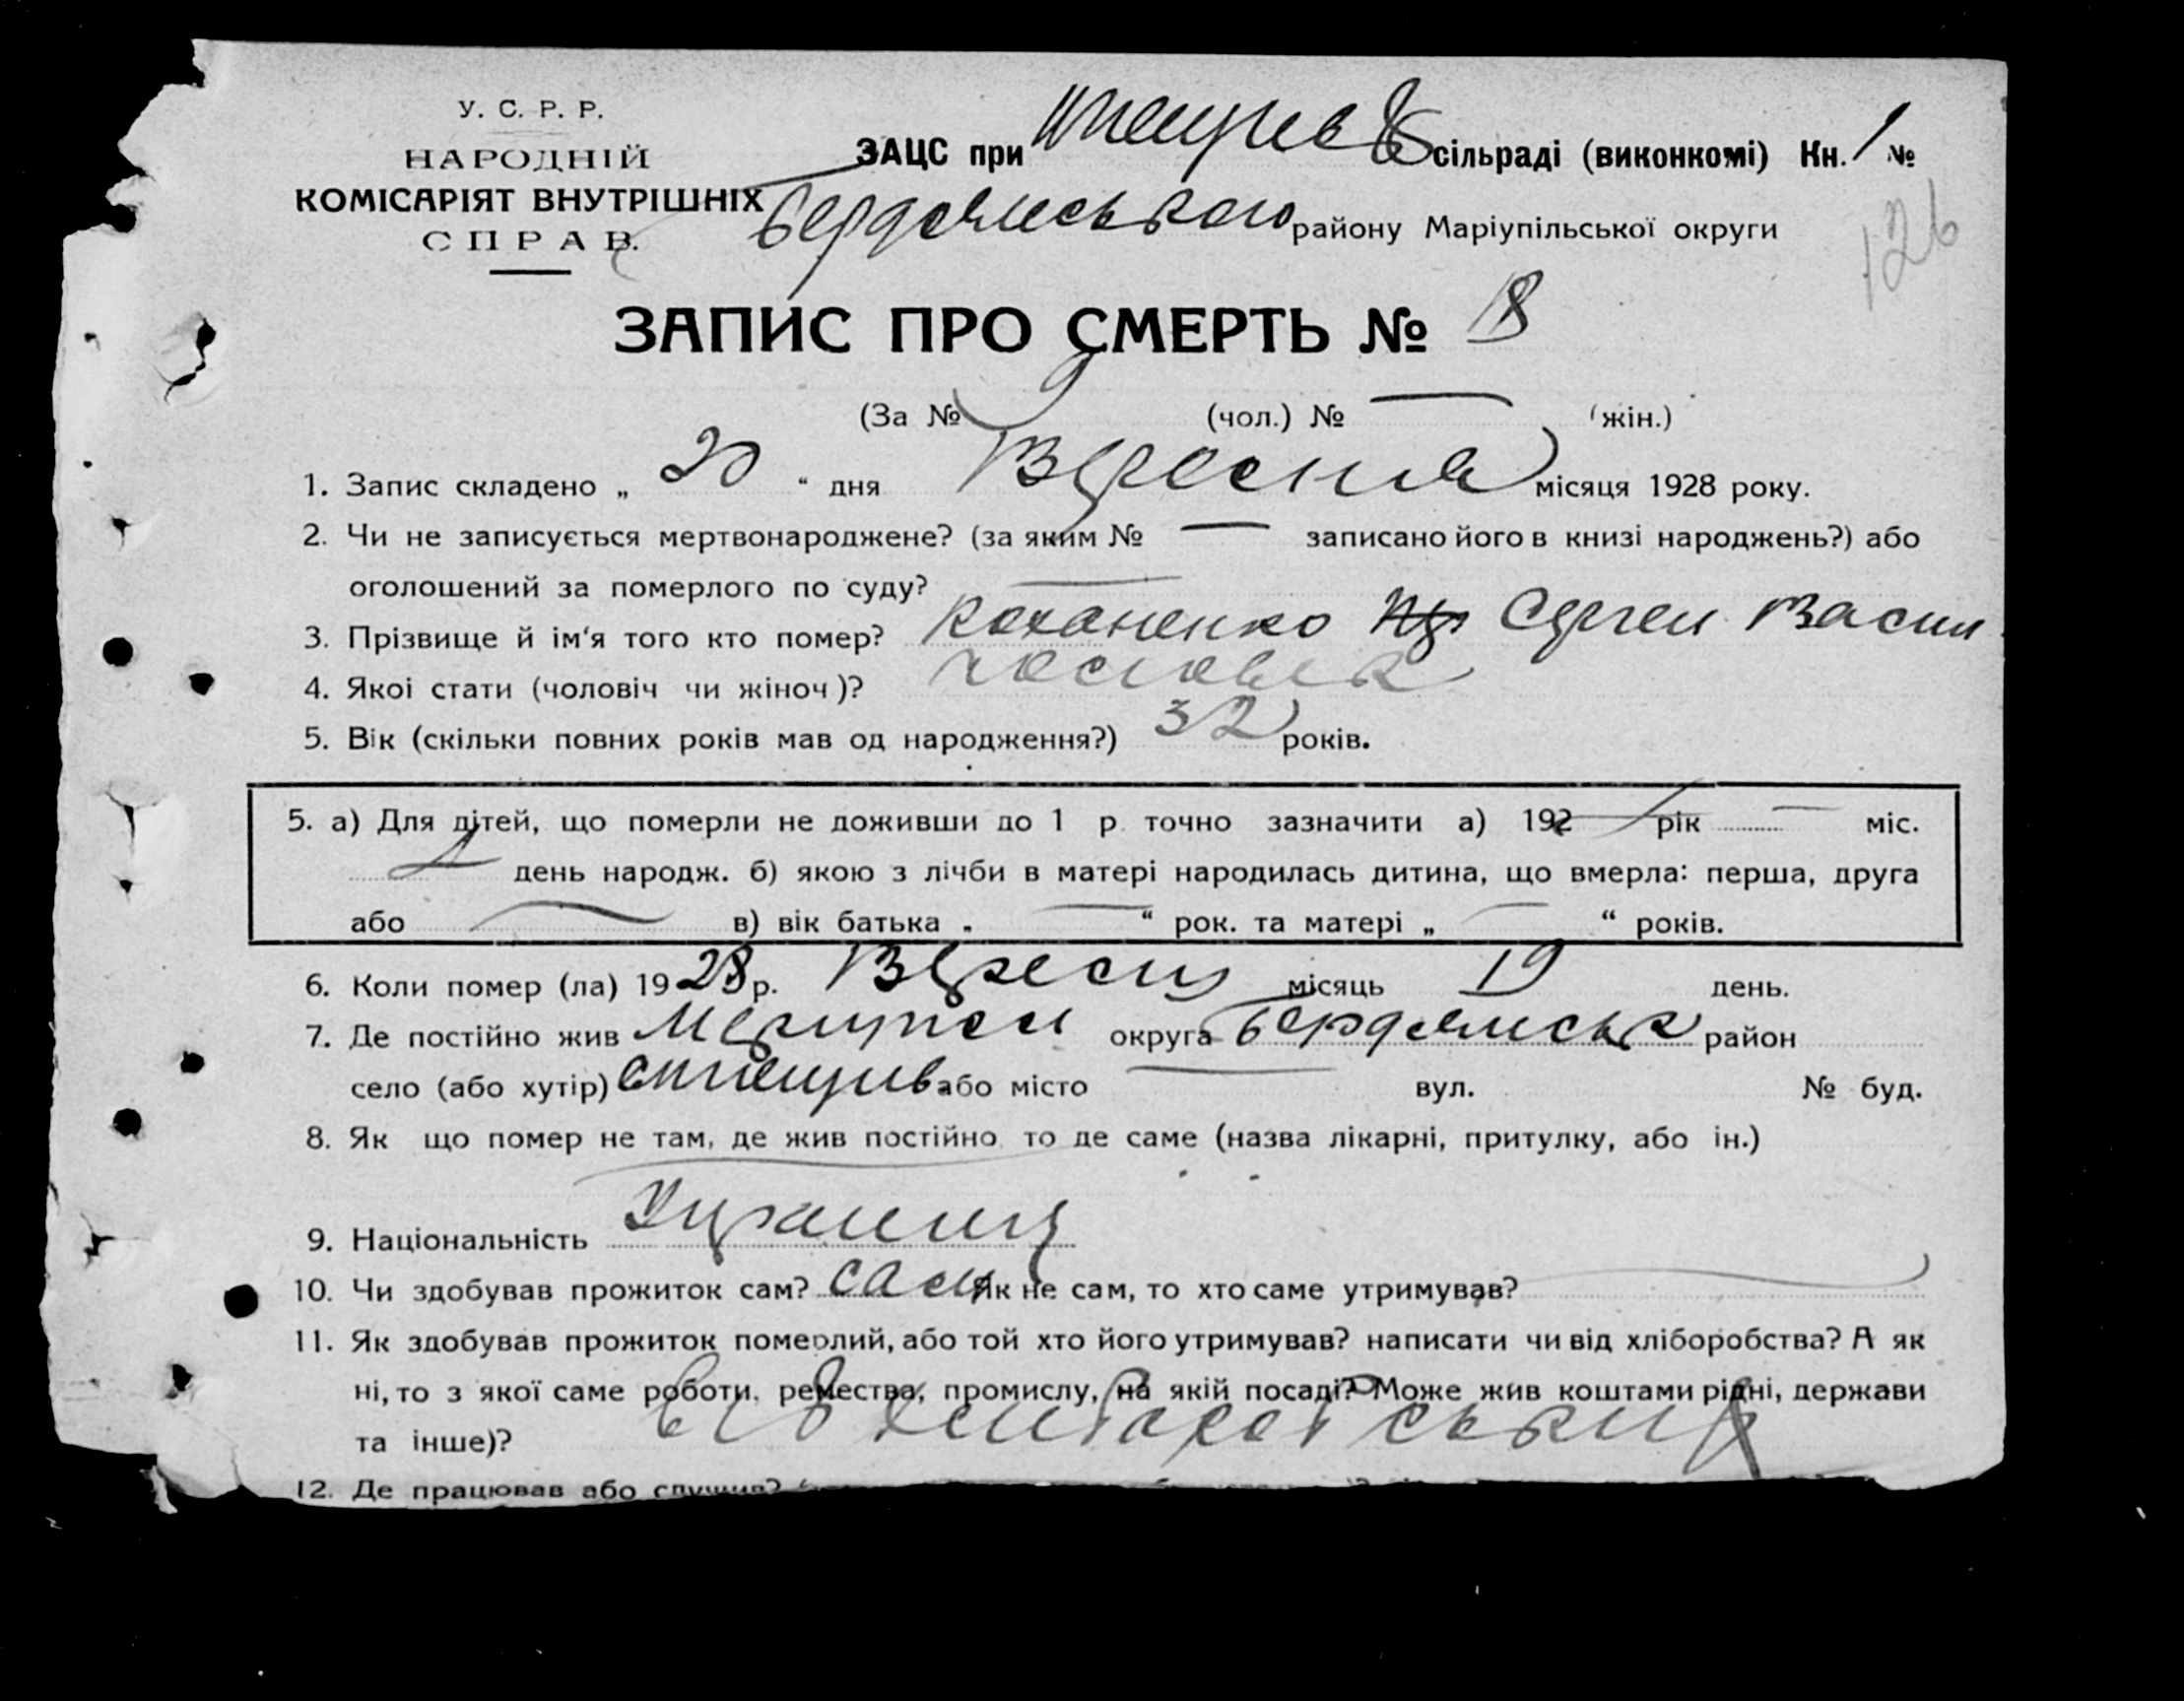 У. С. Р. Р.
НАРОДНІЙ
КОМІСАРІЯТ ВНУТРІШНІХ
СПРАВ.
ЗАЦС при сільраді (виконкомі) Кн. 1 №
126
району Маріупільської округи
ЗАПИС ПРО СМЕРТЬ № 18
(За № 9 (чол.) № — (жін.)
1. Запис складено „ 20 “ дня Вересня місяця 1928 року.
2. Чи не записується мертвонароджене? (за яким № — записано його в книзі народжень?) або
оголошений за померлого по суду? —
3. Прізвище й ім‘я того кто помер? Коханенко Сергей Васил
4. Якоі стати (чоловіч чи жіноч)? чоловек
5. Вік (скільки повних років мав од народження?) 32 років.
5. а) Для дітей, що померли не доживши до 1 р. точно зазначити а) 192 рік — міс.
день народж. б) якою з лічби в матері народилась дитина, що вмерла: перша, друга
або — в) вік батька „ — “ рок. та матері „ — “ років.
6. Коли помер (ла) 1928 р. місяць 19 день.
7. Де постійно жив округа район
село (або хутір) або місто — вул. № буд.
8. Як що помер не там, де жив постійно то де саме (назва лікарні, притулку, або ін.)
9. Національність
10. Чи здобував прожиток сам? сам Як не сам, то хто саме утримував? —
11. Як здобував прожиток померлий, або той хто його утримував? написати чи від хліборобства? А як
ні, то з якої саме роботи, ремества, промислу, на якій посаді? Може жив коштами рідні, держави
та інше)?
12. Де працював або служив?